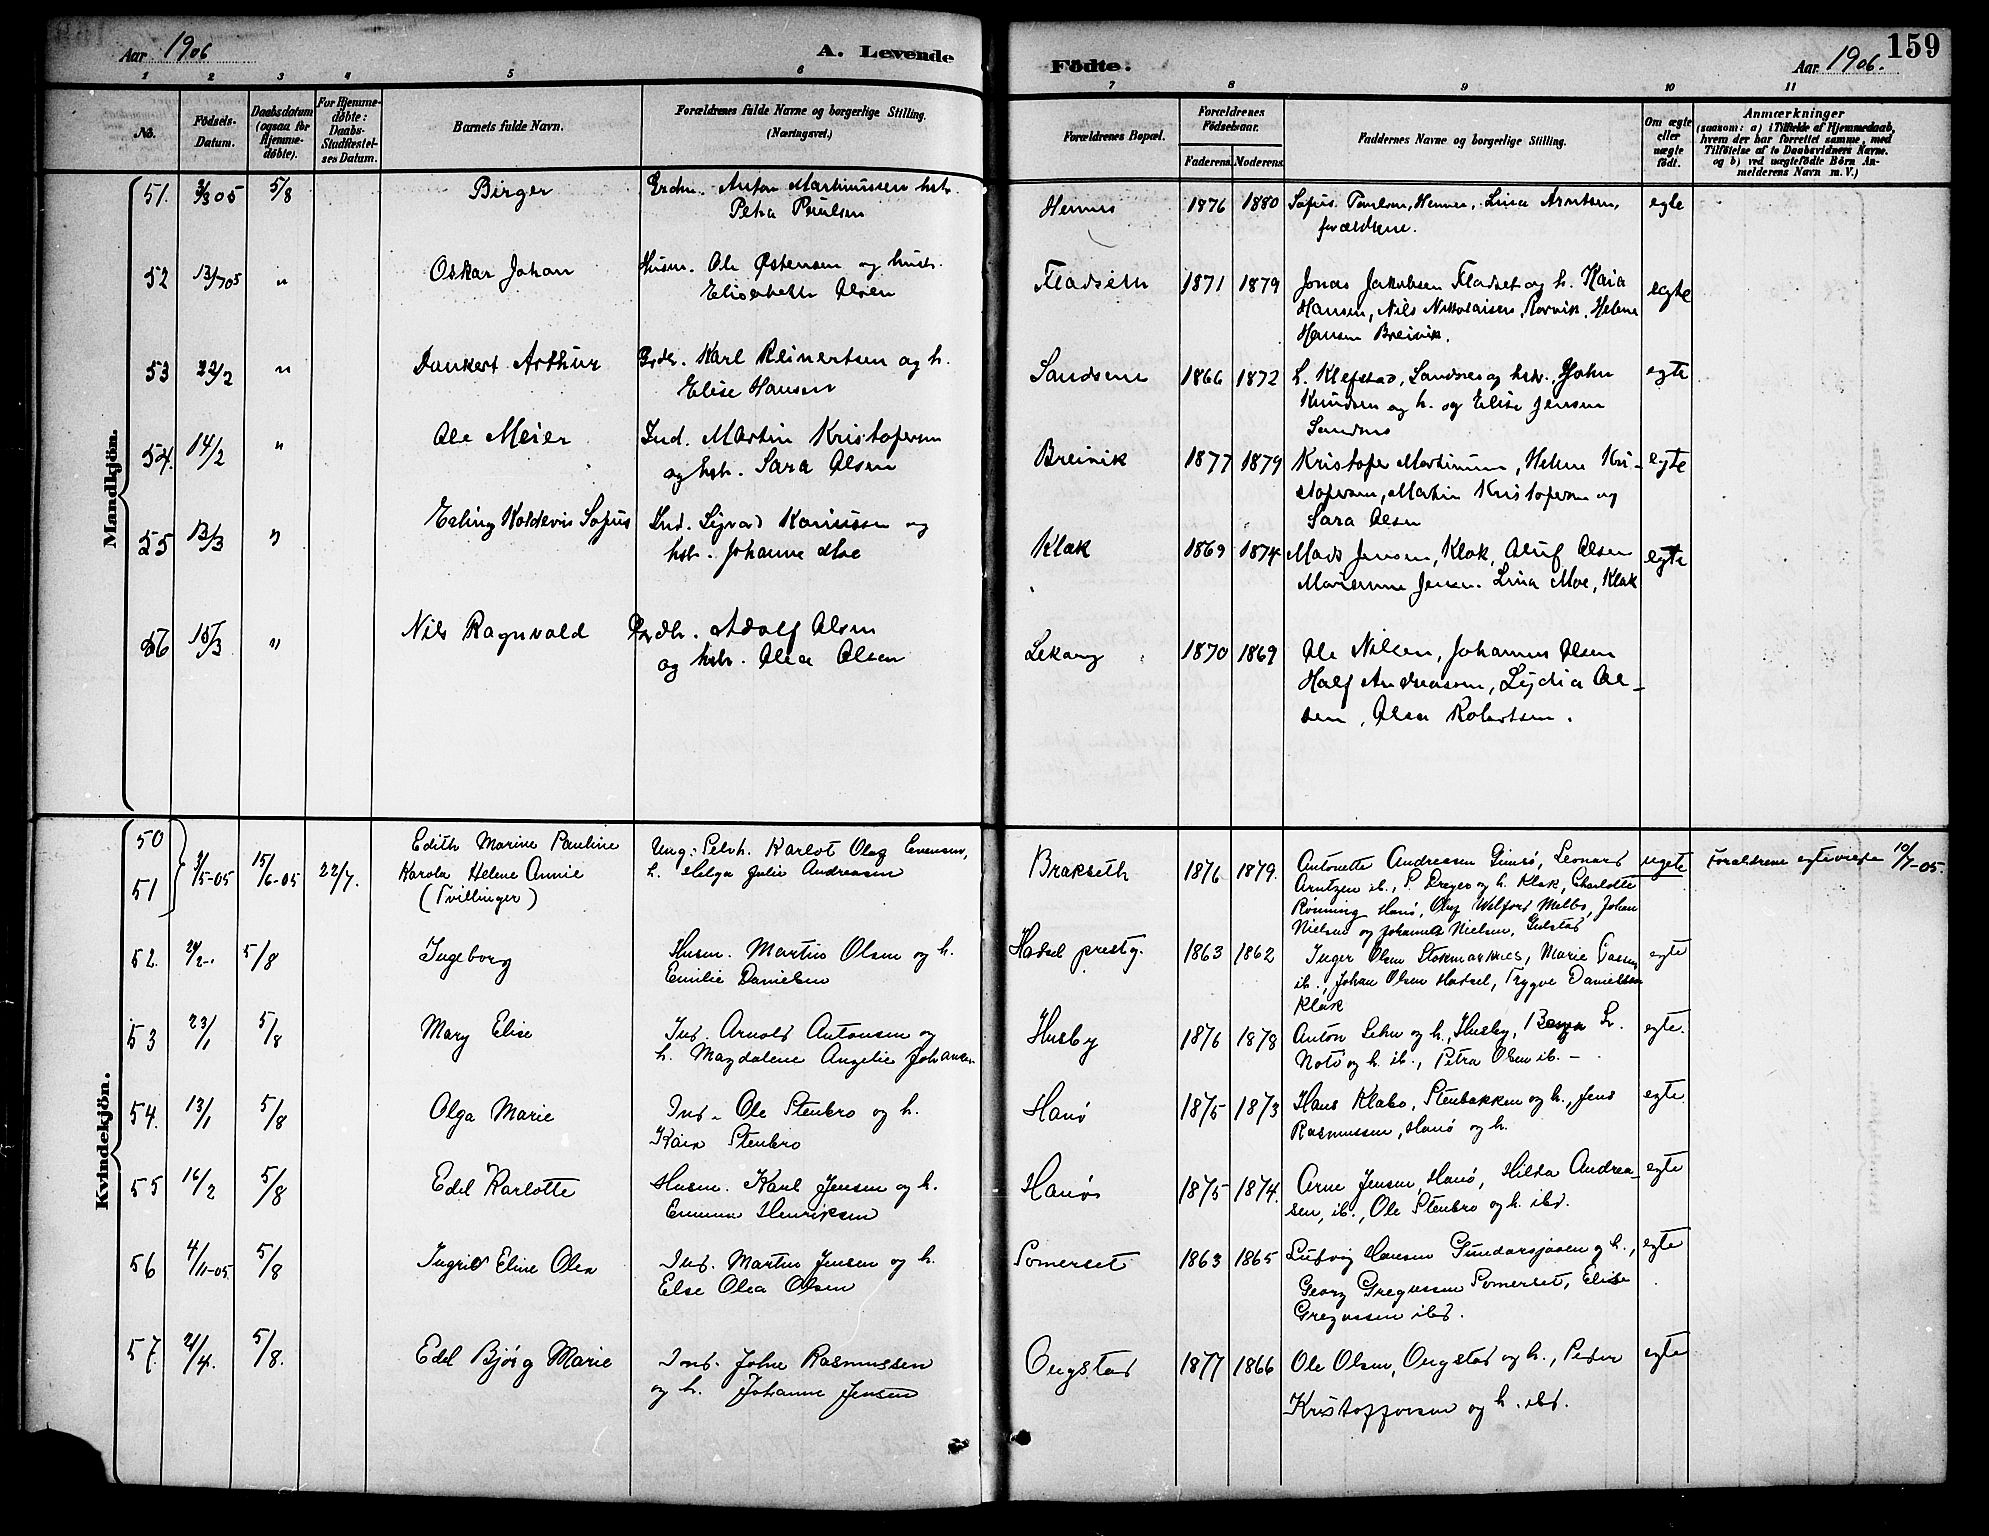 Aar 1906
A. Levende
Födte.
Aar 1906.
159
1 2 3 4 5 6 7 8 9 10 11
No.
Födsels-Datum.
Daabsdatum (ogsaa for Hjemme-döbte).
For Hjemme-döbte: Daabs-Stadfæstel-ses Datum.
Barnets fulde Navn.
Forældrenes fulde Navne og borgerlige Stilling.
(Næringsvei.)
Forældrenes Bopæl.
Forældrenes Födselsaar.
Faderens. Moderens.
Faddernes Navne og borgerlige Stilling.
Om ægte eller uægte födt.
Anmærkninger
(saasom: a) i Tilfælde af Hjemmedaab,
hvem der har forrettet samme, med
Tilföielse af to Daabsvidners Navne.
og b) ved uægtefödte Börn An-
melderens Navn m. V.)
Mandkjön.
51. 3/8 05 5/8 Birger Anton Martinussen hstr. 1876 1880 Sofus Paulsen, Lina Arntsen, egte
Petra Paulsen forældrene.
52 13/7 05 " Oskar Johan Husm. Ole Østensen og hustr. Fladseth 1871 1879 Jonas Jakobsen Fladset og h. Kaia egte
Elisabeth Olsen Hansen, Nils Nikolaisen, Korvik, Helene
Hansen Breivik.
53 22/2 " Dankert Arthur Karl Reinertsen og h. Sandsnes 1866 1872 L. Klefstad, Sandnes og hstr. John egte
Elise Hansen Knudsen og h. og Elise Jensen
Sandnes
54. 14/2 " Ole Meier Ind. Martin Kristofersen Breivik 1877 1879 Kristofer Martinussen, Helene Kri- egte
og hstr. Sara Olsen stofersen, Martin Kristofersen og
Sara Olsen
55 13/3 " Erling Koldevin Sofus Ind. Sigvard og Klak 1869 1874 Mads Jensen, Klak, Oluf Olsen egte
hstr. Johanne Moe Jensen. Lina Moe, Klak
56 15/3 " Nils Ragnvald Adolf Olsen Lekang 1870 1869 Ole Nilsen, Johannes Olsen
og hstr. Olea Olsen Half Andreasen, Lydia Ol-
sen, Olea Robertsen.
Kvindekjön.
50 Edith Marine Pauline Ung: Selvh. Karlot Olag Evensen,
51 3/5-05 15/6-05 22/7. Karola Helene Annie h. Helga Julie Andreasen Brakseth 1876 1879. Antonette Andreasen Gimsø, Leonard uegte Forældrene egteviede 10/7-05.
(Tvillinger) Arntzen ib., S. Dreyer og h. Klak, Charlotte
Rønning Hanø, Olag Welford Melbo, Johan
Nielsen og Johanna Nielsen, Gulstad
52. 24/2 5/8 Ingeborg Husm. Martin Olsen og h. Hadsel prestg. 1863 1862 Inger Olsen Stokmarknes, Marie egte
Emilie Danielsen ib., Johan Olsen Hadsel, Trygve Danielsen
Klak
53 23/1 5/8 Mary Elise Ind. Arnold Antonsen og Husby 1876 1878 Anton Lehn og h., Husby, egte.
h. Magdalene Angelie Johansen og h. ib., Petra Olsen ib. –
54. 13/1 5/8 Olga Marie Ind. Ole Stenbro og h. Hanø 1875 1873 Hans Klabo, Stenbakken og h., Jens egte.
Kaia Stenbro Rasmussen, Hanø og h.
55 16/2 5/8 Edel Karlotte Husm. Karl Jensen og h. Hanø 1875 1874. Arne Jensen, Hanø, Hilda Andrea- egte
Emma Henriksen sen, ib., Ole Stenbro og h. ibd.
56 4/11-05 5/8 Ingrid Eline Olea Ind. Martin Jensen og h. Somerset 1863 1865 Ludvig Hansen og h., egte
Else Olea Olsen Georg Gregussen Somerset, Elise
Gregussen ibd.
57. 21/4. 5/8. Edel Bjørg Marie Ind. John Rasmussen Ongstad 1877 1866 Ole Olsen, Ongstad og h., Peder egte
og h. Johanne Jensen Kristoffersen og h. ibd.